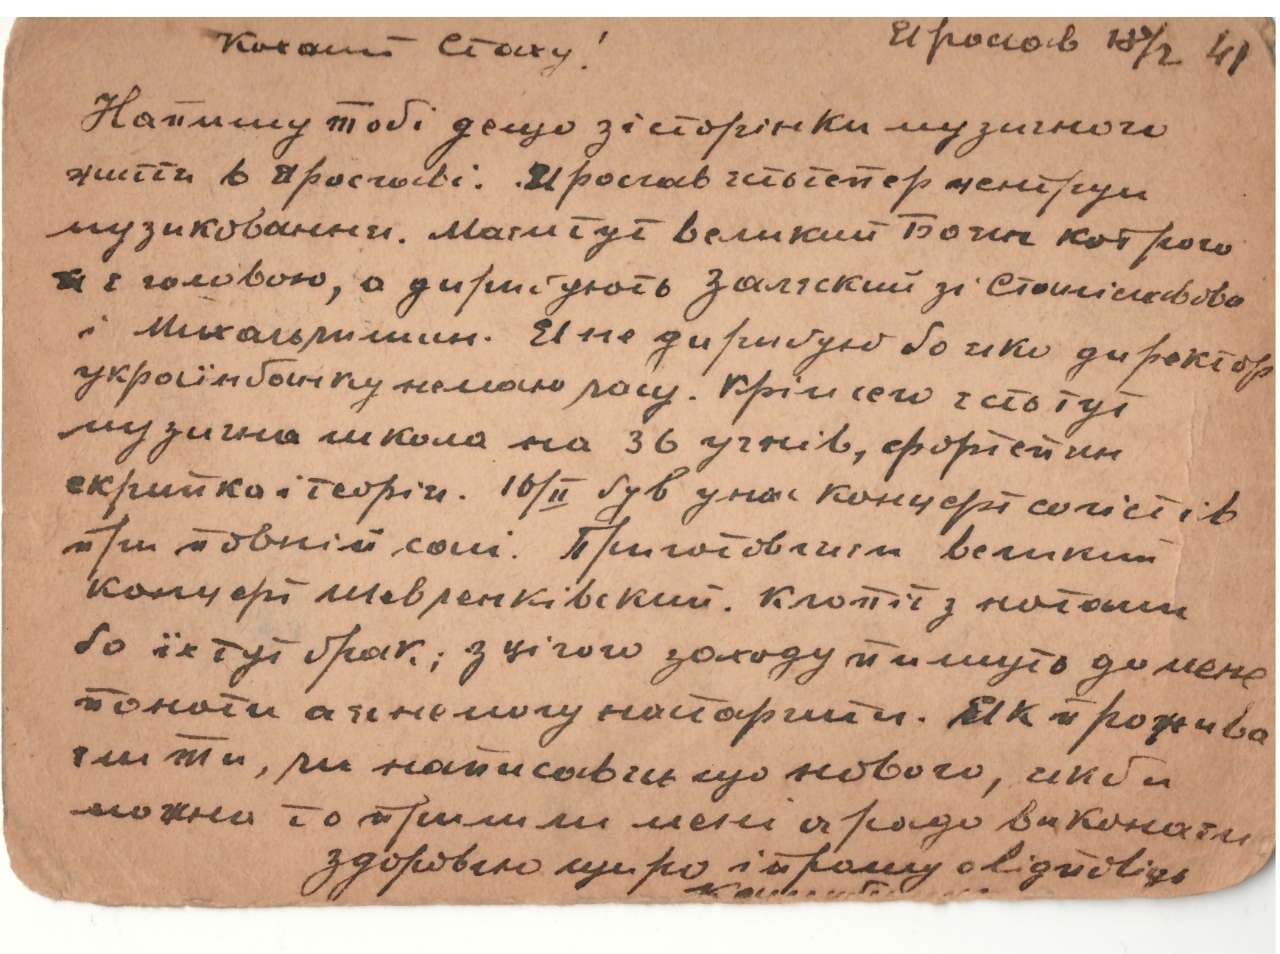 Коханий Стаху! Ярослав 18/2 41
Напишу тобі дещо зі сторінки музичного
життя в Ярославі. Ярослав єсть тепер центрум
музиковання. Маємо тут великий Боян котрого
я є головою, а диригують Залеский зі Станіславова
і Михальчишин. Я не диригую бо яко директор
українбанку не маю часу. Крім сего єсть тут
музична школа на 36 учнів, фортепян
скрипка і теорія. 16/II був у нас концерт солістів
при повній сали. Приготовляєм великий
концерт Шевченківский. Клопіт з нотами
бо їх тут брак; з цілого заходу пишуть до мене
по ноти а я не можу настарчити. Як прожива
єш ти, чи написав що нового, якби
можна то пришли мені а радо виконаєм
здоровлю щиро і прошу о відповідь